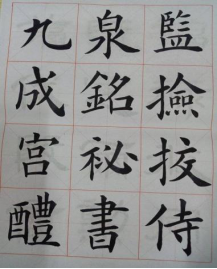 九成宫醴
泉銘祕書
監撿挍侍